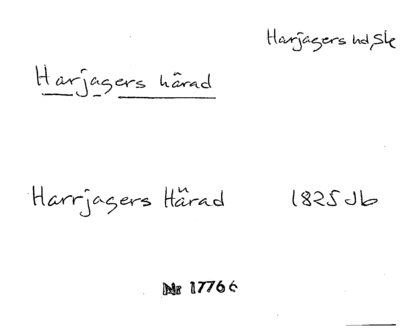 Harjagers hd, Sk
Harjagers härad
Harrjagers Härad 1825 Jb
Nr 17766